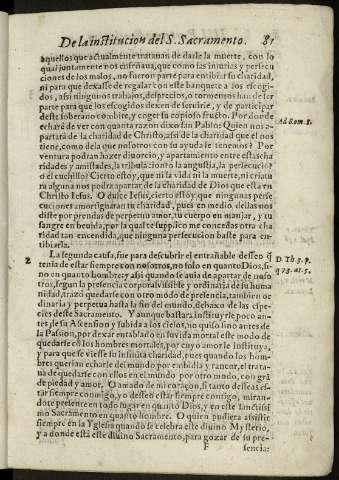 De la institucion del S. Sacramento. 81
aquellos que actualmente tratauan de darle la muerte, con lo
qual juntamente nos enseñaua, que como las iniurias y persecu
ciones de los malos, no fueron parte para entibiar su charidad,
ni para que dexasse de regalar con este banquete a los escogi
dos, assi ningunos trabajos, desprecios, o tormentos han de ser
parte para que los escogidos dexen de seruirle, y de participar
deste soberano combite, y coger su copioso fructo. Por donde
echaré de ver con quanta razon dixo san Pablo: Quien nos a-
partará de la charidad de Christo, assi de la charidad que el nos
tiene, como dela que nosotros con su ayuda le tenemos? Por
ventura podran hazer diuorcio, y apartamiento entre estas cha
ridades y amistades, la tribulacion o la angustia, la persecucion
o el cuchillo? Cierto estoy, que ni la vida ni la muerte, ni criatu
ra alguna nos podra apartar de la charidad de Dios que esta en
Christo Iesus. O dulce Iesus, cierto estoy que ningunas perse
cuciones amortiguaran tu charidad, pues en medio dellas nos
diste por prendas de perpetuo amor, tu cuerpo en manjar, y tu
sangre en beuida, por la qual te supplico me concedas otra cha
ridad tan encendida, que ninguna persecucion baste para en-
tibiarla.
Ad Rom. 8.
2 La segunda causa, fue para descubrir el entrañable desseo q̃
tenia de estar siempre con nosotros, no solo en quanto Dios, si-
no en quanto hombre; y assi quando se auia de apartar de noso
tros, segun la presencia corporal visible y ordinaria de su huma
nidad, trazò quedarse con otro modo de presencia, tambien or
dinaria y perpetua hasta la fin del mundo, debaxo de las espe-
cies deste Sacramento. Y aunque bastara instituyrle poco an-
tes de su Ascension y subida a los cielos, no quiso sino antes de
la Passion, por dexar entablado en su vida mortal este modo de
quedarse cõ los hombres mortales, por cuyo amor le instituya,
y para que se viesse su infinita charidad, pues quando los hom-
bres querian echarle del mundo por embidia y rancor, el trata-
ua de quedarse con ellos en el mundo por otro modo, con grã
de piedad y amor. O amado de mi coraçon, si tanto desseas es-
tar siempre conmigo, yo desseo estar siempre contigo, miran-
dote presente en todo lugar en quanto Dios, y en este sanctissi
mo Sacramento en quanto hombre. O quien pudiera assistir
siempre en la Yglesia quando se celebra este diuino Mysterio,
y a donde está este diuino Sacramento, para gozar de su pre-
D. Th. 3. p.
q. 75. ar. 5.
F sencia: